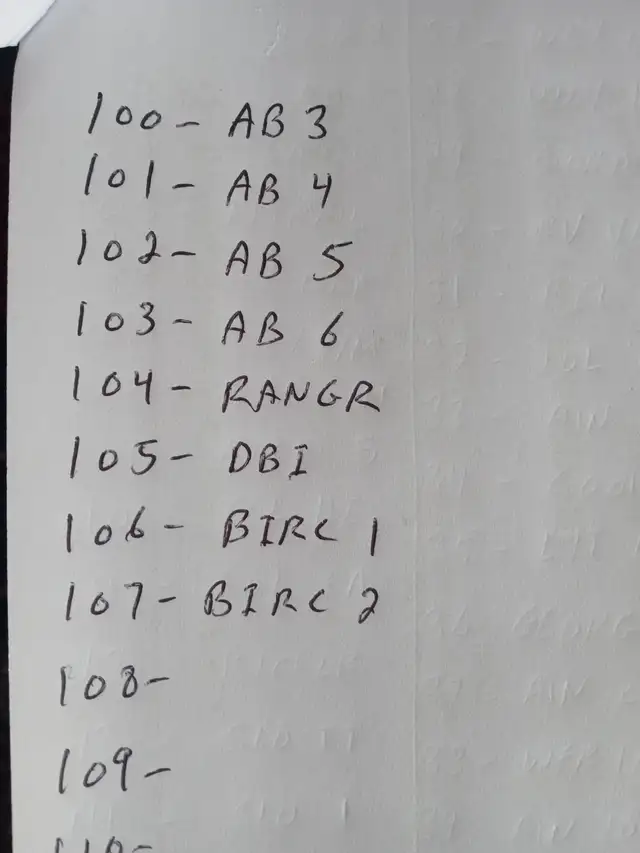 100- AB 3
101- AB 4
102- AB 5
103- AB 6
104- RANGR
105- DBI
106- BIRC 1
107- BIRC 2
108-
109-
110-